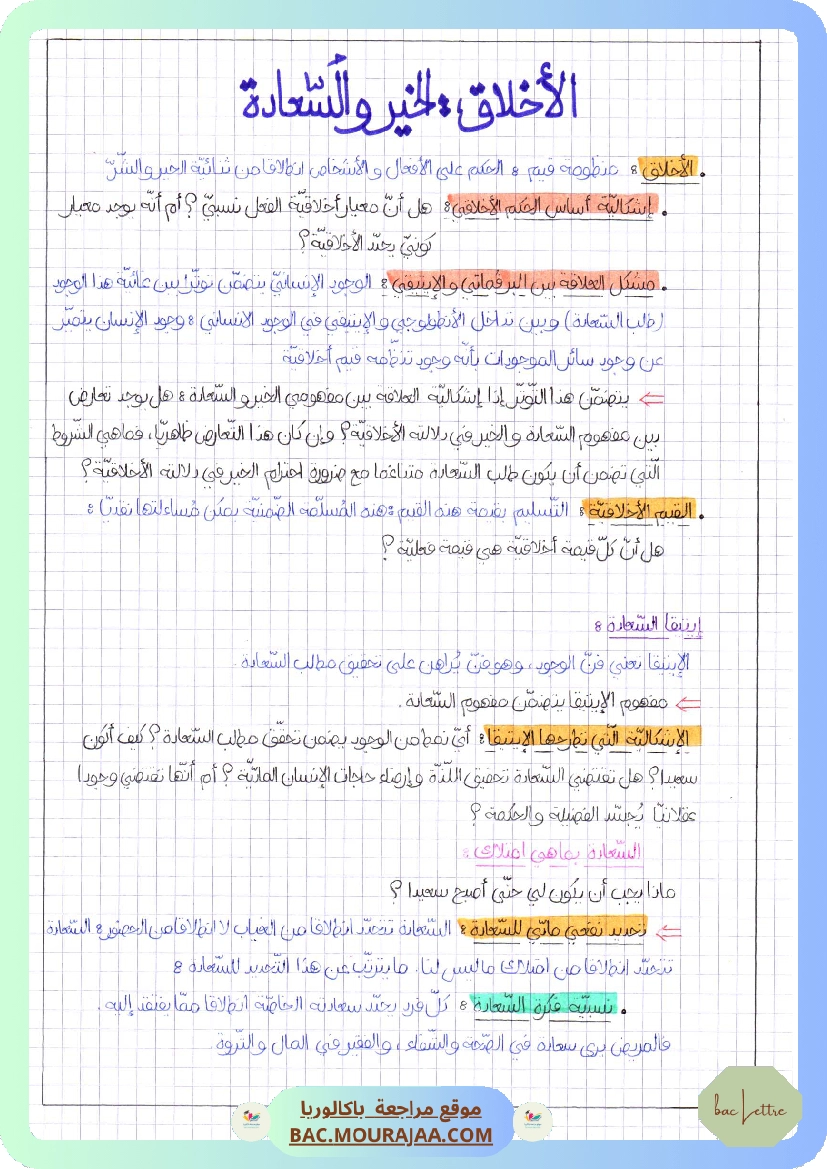 الأخلاق: الخير والسّعادة
• الأخلاق: منظومة قيم: الحكم على الأفعال والأشخاص انطلاقا من ثنائيّة الخير والشّرّ
• إشكاليّة أساس الحكم الأخلاقي: هل أنّ معيار أخلاقيّة الفعل نسبيّ؟ أم أنّه يوجد معيار
كونيّ يحدّد الأخلاقيّة؟
• مشكل العلاقة بين البرقماتي والإيتيقي: الوجود الإنسانيّ يتضمّن توتّرا بين غائيّة هذا الوجود
(طلب السّعادة) وبين تداخل الأنطولوجي والإيتيقي في الوجود الانساني: وجود الإنسان يتميّز
عن وجود سائر الموجودات بأنّه وجود تنظّمه قيم أخلاقيّة
⇐ يتضمّن هذا التّوتّر إذا إشكاليّة العلاقة بين مفهومي الخير والسّعادة: هل يوجد تعارض
بين مفهوم السّعادة والخير في دلالته الأخلاقيّة؟ وإن كان هذا التّعارض ظاهريّا، فماهي الشّروط
الّتي تضمن أن يكون طلب السّعادة متناغما مع ضرورة احترام الخير في دلالته الأخلاقيّة؟
• القيم الأخلاقيّة: التّسليم بقيمة هذه القيم: هذه المُسلّمة الضّمنيّة يمكن مُساءلتها نقديّا:
هل أنّ كلّ قيمة أخلاقيّة هي قيمة فعليّة؟
إيتيقا السّعادة:
الإيتيقا تعني فنّ الوجود، وهو فنّ يُراهن على تحقيق مطلب السّعادة.
⇐ مفهوم الإيتيقا يتضمّن مفهوم السّعادة.
الإشكاليّة الّتي تطرحها الإيتيقا: أيّ نمط من الوجود يضمن تحقّق مطلب السّعادة؟ كيف أكون
سعيدا؟ هل تقتضي السّعادة تحقيق اللّذّة وإرضاء حاجات الإنسان الماديّة؟ أم أنّها تقتضي وجودا
عقلانيّا يُجسّد الفضيلة والحكمة؟
السّعادة بماهي امتلاك:
ماذا يجب أن يكون لي حتّى أصبح سعيدا؟
⇐ تحديد نفعي ماديّ للسّعادة: السّعادة تتحدّد انطلاقا من الغياب لا انطلاقا من الحضور: السّعادة
تتحدّد انطلاقا من امتلاك ماليس لنا. ما يترتّب عن هذا التّحديد للسّعادة:
• نسبيّة فكرة السّعادة: كلّ فرد يحدّد سعادته الخاصّة انطلاقا ممّا يفتقد إليه.
فالمريض يرى سعادة في الصّحّة والشّفاء، والفقير في المال والثّروة
موقع مراجعة باكالوريا
BAC.MOURAJAA.COM
bac Lettre